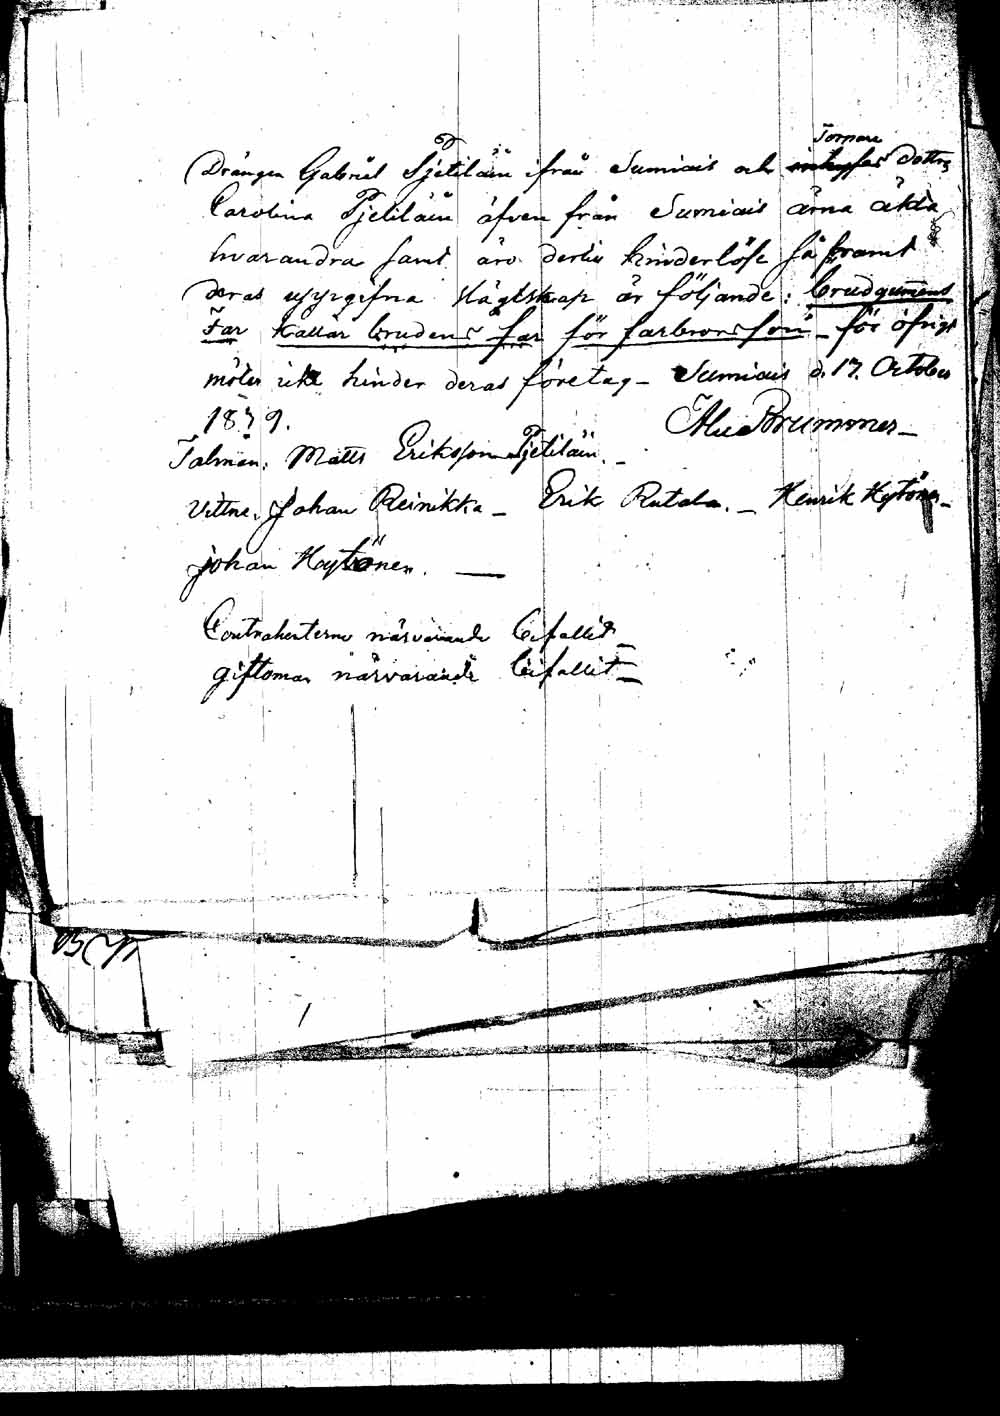 Torpare
Drängen Gabriel Tjetiläin ifrån Sumiais och Dottren
Carolina Tjetiläin äfven från Sumiais ärna äkta
hvarandra samt äro dertill hinderlöse så framt
deras uppgifna slägtskap är följande: brudgummens
Far kallar brudens far för farbrors son - för öfrigt
möter icke hinder deras företag - Sumiais d. 17. October
1839. Brummer -
Talman: Matts Eriksson Tjetiläin. -
Vittne. Johan Reinikka - Erik Rutala. - Henrik Hytönen -
Johan Hytönen. -
Contrahenterne närvarande bifallit -
giftoman närvarande bifallit -